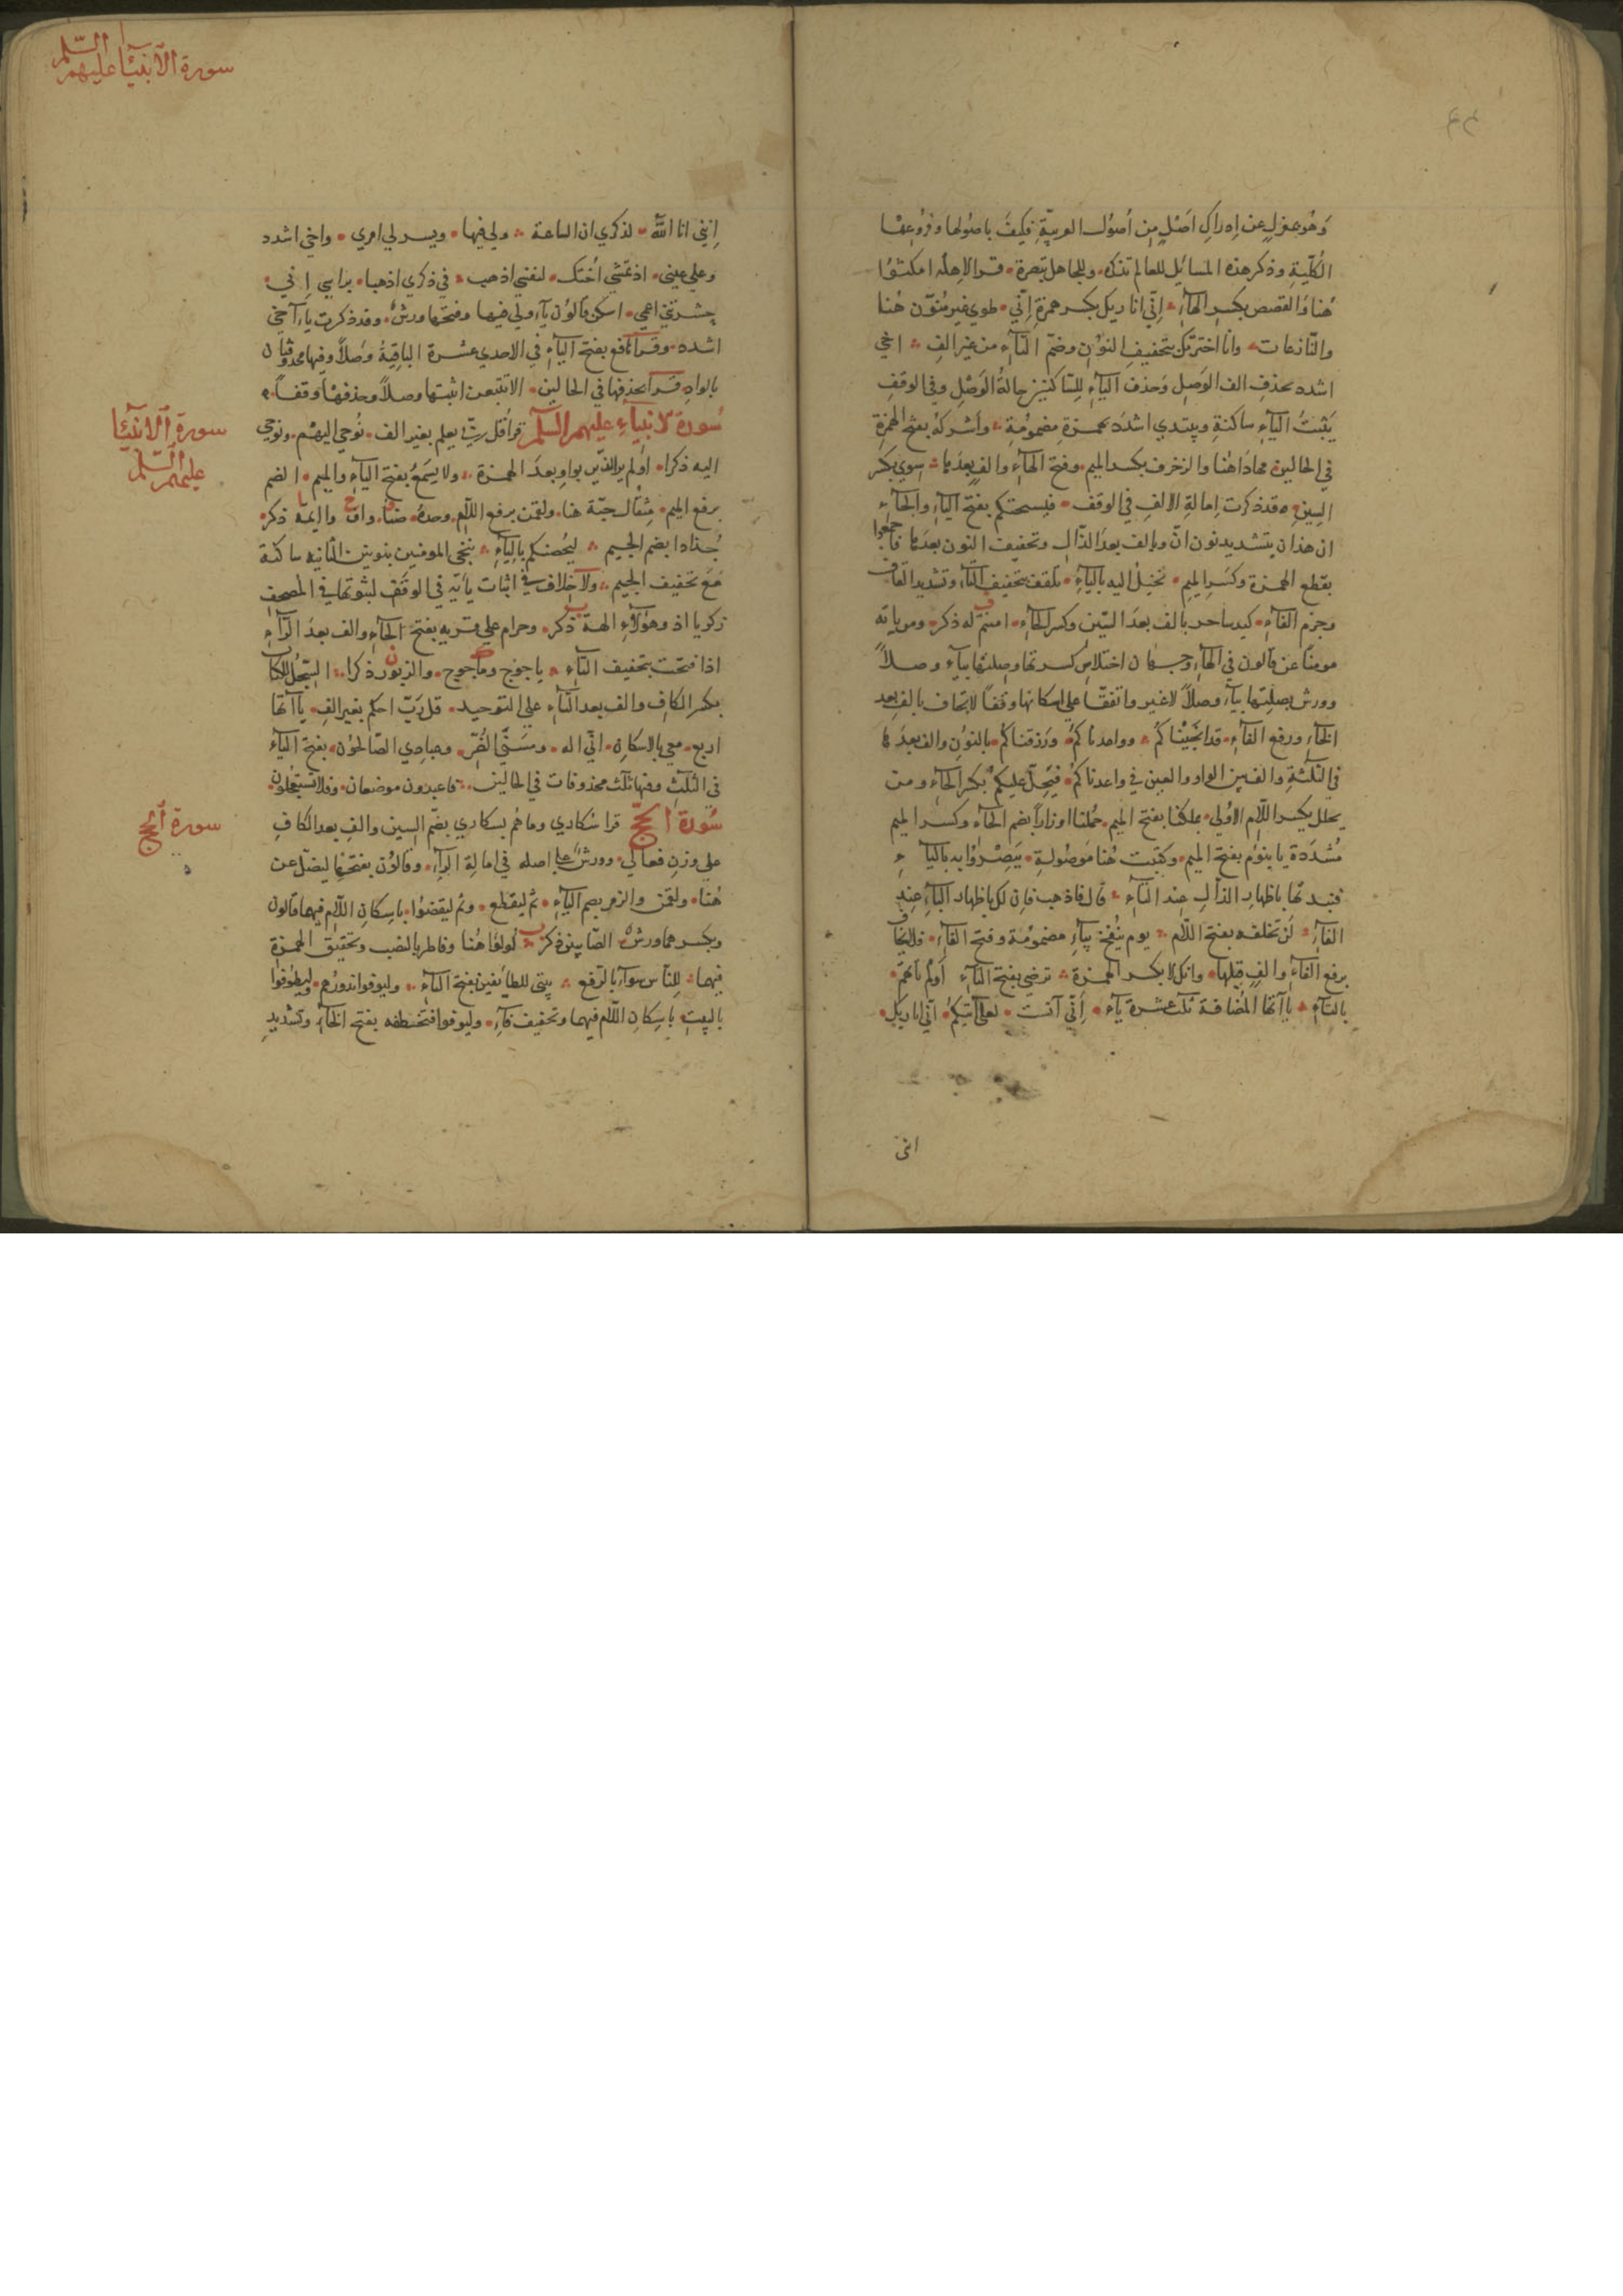 وهو بمعزل عن ادراك اصل من اصول العربية فكيف باصولها وفروعها
الكلية وذكر هذه المسائل للعالم تذكره وللجاهل تبصرة قرا لاهله امكثوا
هنا والقصص بكسر الهاء اني انا ربك بكسر همزة اني طوي غير منون هنا
والنازعات وانا اخترتك بتخفيف النون وضم التاء من غير الف اخي
اشدد بحذف الف الوصل وحذف الياء للساكنين حالة الوصل وفي الوقف
يثبت الياء ساكنة ويبتدي اشدد بهمزة مضمومة واشركه بفتح الهمزة
في الحالين مهادا هنا والزخرف بكسر الميم وفتح الهاء والف بعدها سوي بكسر
السين وقد ذكرت امالة الالف في الوقف فيسحتكم بفتح الياء والحاء
ان هذان بتشديد نون ان والف بعد الذال وتخفيف النون بعدها فاجمعوا
بقطع الهمزة وكسر الميم تخيل اليه بالياء تلقف بتخفيف التاء وتشديد القاف
وجزم الفاء كيد ساحر بالف بعد السين وكسر الحاء امنتم له ذكر ومن ياته
مومنا عن قالون في الهاء وجهان اختلاس كسرتها وصلتها بياء وصلا
وورش بصلتها بياء وصلا لا غير واتفقا على اسكانها وقفا لا تخاف بالف بعد
الخاء ورفع الفاء قد انجيناكم وواعدناكم ورزقناكم بالنون والف بعدها
في الثلثة والف بين الواو والعين في واعدناكم فيحل عليكم بكسر الحاء ومن
يحلل بكسر اللام الاولي بملكنا بفتح الميم حملنا اوزارا بضم الحاء وكسر الميم
مشددة يا بنوم بفتح الميم وكتبت هنا موصولة يبصروا به بالياء
فنبذتها باظهار الذال عند التاء قال فاذهب فان لك باظهار الباء عند
الفاء لن تخلفه بفتح اللام يوم ينفخ بياء مضمومة وفتح الفاء فلا يخاف
برفع الفاء والف قبلها وانك لا بكسر الهمزة ترضي بفتح التاء اولم تاتهم
بالتاء ياآتها المضافة ثلث عشرة ياء اني آنست لعلي آتيكم اني انا ربك
انني
سورة الانبيا عليهم السلم
انني انا الله لذكري ان الساعة ولي فيها ويسر لي امري واخي اشدد
وعلي عيني اذ تمشي اختك لنفسي اذهب في ذكري اذهبا براسي اني
حشرتني اعمي اسكن قالون ياء ولي فيها وفتحها ورش وقد ذكرت ياء اخي
اشدد وقرا نافع بفتح الياء في الاحدي عشرة الباقية وصلا وفيها محذوفتان
بالواد قرا بحذفها في الحالين الا تتبعن اثبتها وصلا وحذفها وقفا
سورة الانبياء عليهم السلم قرا قل ربي يعلم بغير الف نوحي اليهم ونوحي
سورة الانبيا
عليهم السلم
اليه ذكرا اولم ير الذين بواو بعد الهمزة ولا يسمع بفتح الياء والميم الضم
برفع الميم مثقال حبة هنا ولقمن برفع اللام وحده ضياء واف وايمة ذكر
جذاذا بضم الجيم ليحصنكم بالياء ننجي المومنين بنونين الثانيه ساكنة
مع تخفيف الجيم ولا خلاف في اثبات يائه في الوقف لثبوتها في المصحف
زكريا اذ وهولاء الهة ذكر وحرام علي قرية بفتح الحاء والف بعد الراء
اذا فتحت بتخفيف التاء ياجوج وماجوج والزبور ذكرا السجل للكتاب
بكسر الكاف والف بعد التاء علي التوحيد قل رب احكم بغير الف ياآتها
اربع معي بالاسكان اني اله ومسني الضر وعبادي الصالحون بفتح الياء
في الثلث وفيها ثلث محذوفات في الحالين فاعبدون موضعان وفلا تستعجلون
سورة الحج قرا سكاري وما هم بسكاري بضم السين والف بعد الكاف
سورة الحج
علي وزن فعالي وورش علي اصله في امالة الراء وقالون بفتحها ليضل عن
هنا ولقمن والزمر بضم الياء ثم ليقطع وثم ليقضوا باسكان اللام فيهما قالون
وبكسرهما ورش الصابين ذكر لولوا هنا وفاطر بالنصب وتحقيق الهمزة
فيهما للناس سواء بالرفع بيتي للطائفين بفتح الياء وليوفوا نذورهم وليطوفوا
بالبيت باسكان اللام فيهما وتخفيف فاء وليوفوا فتخطفه بفتح الخاء وتشديد